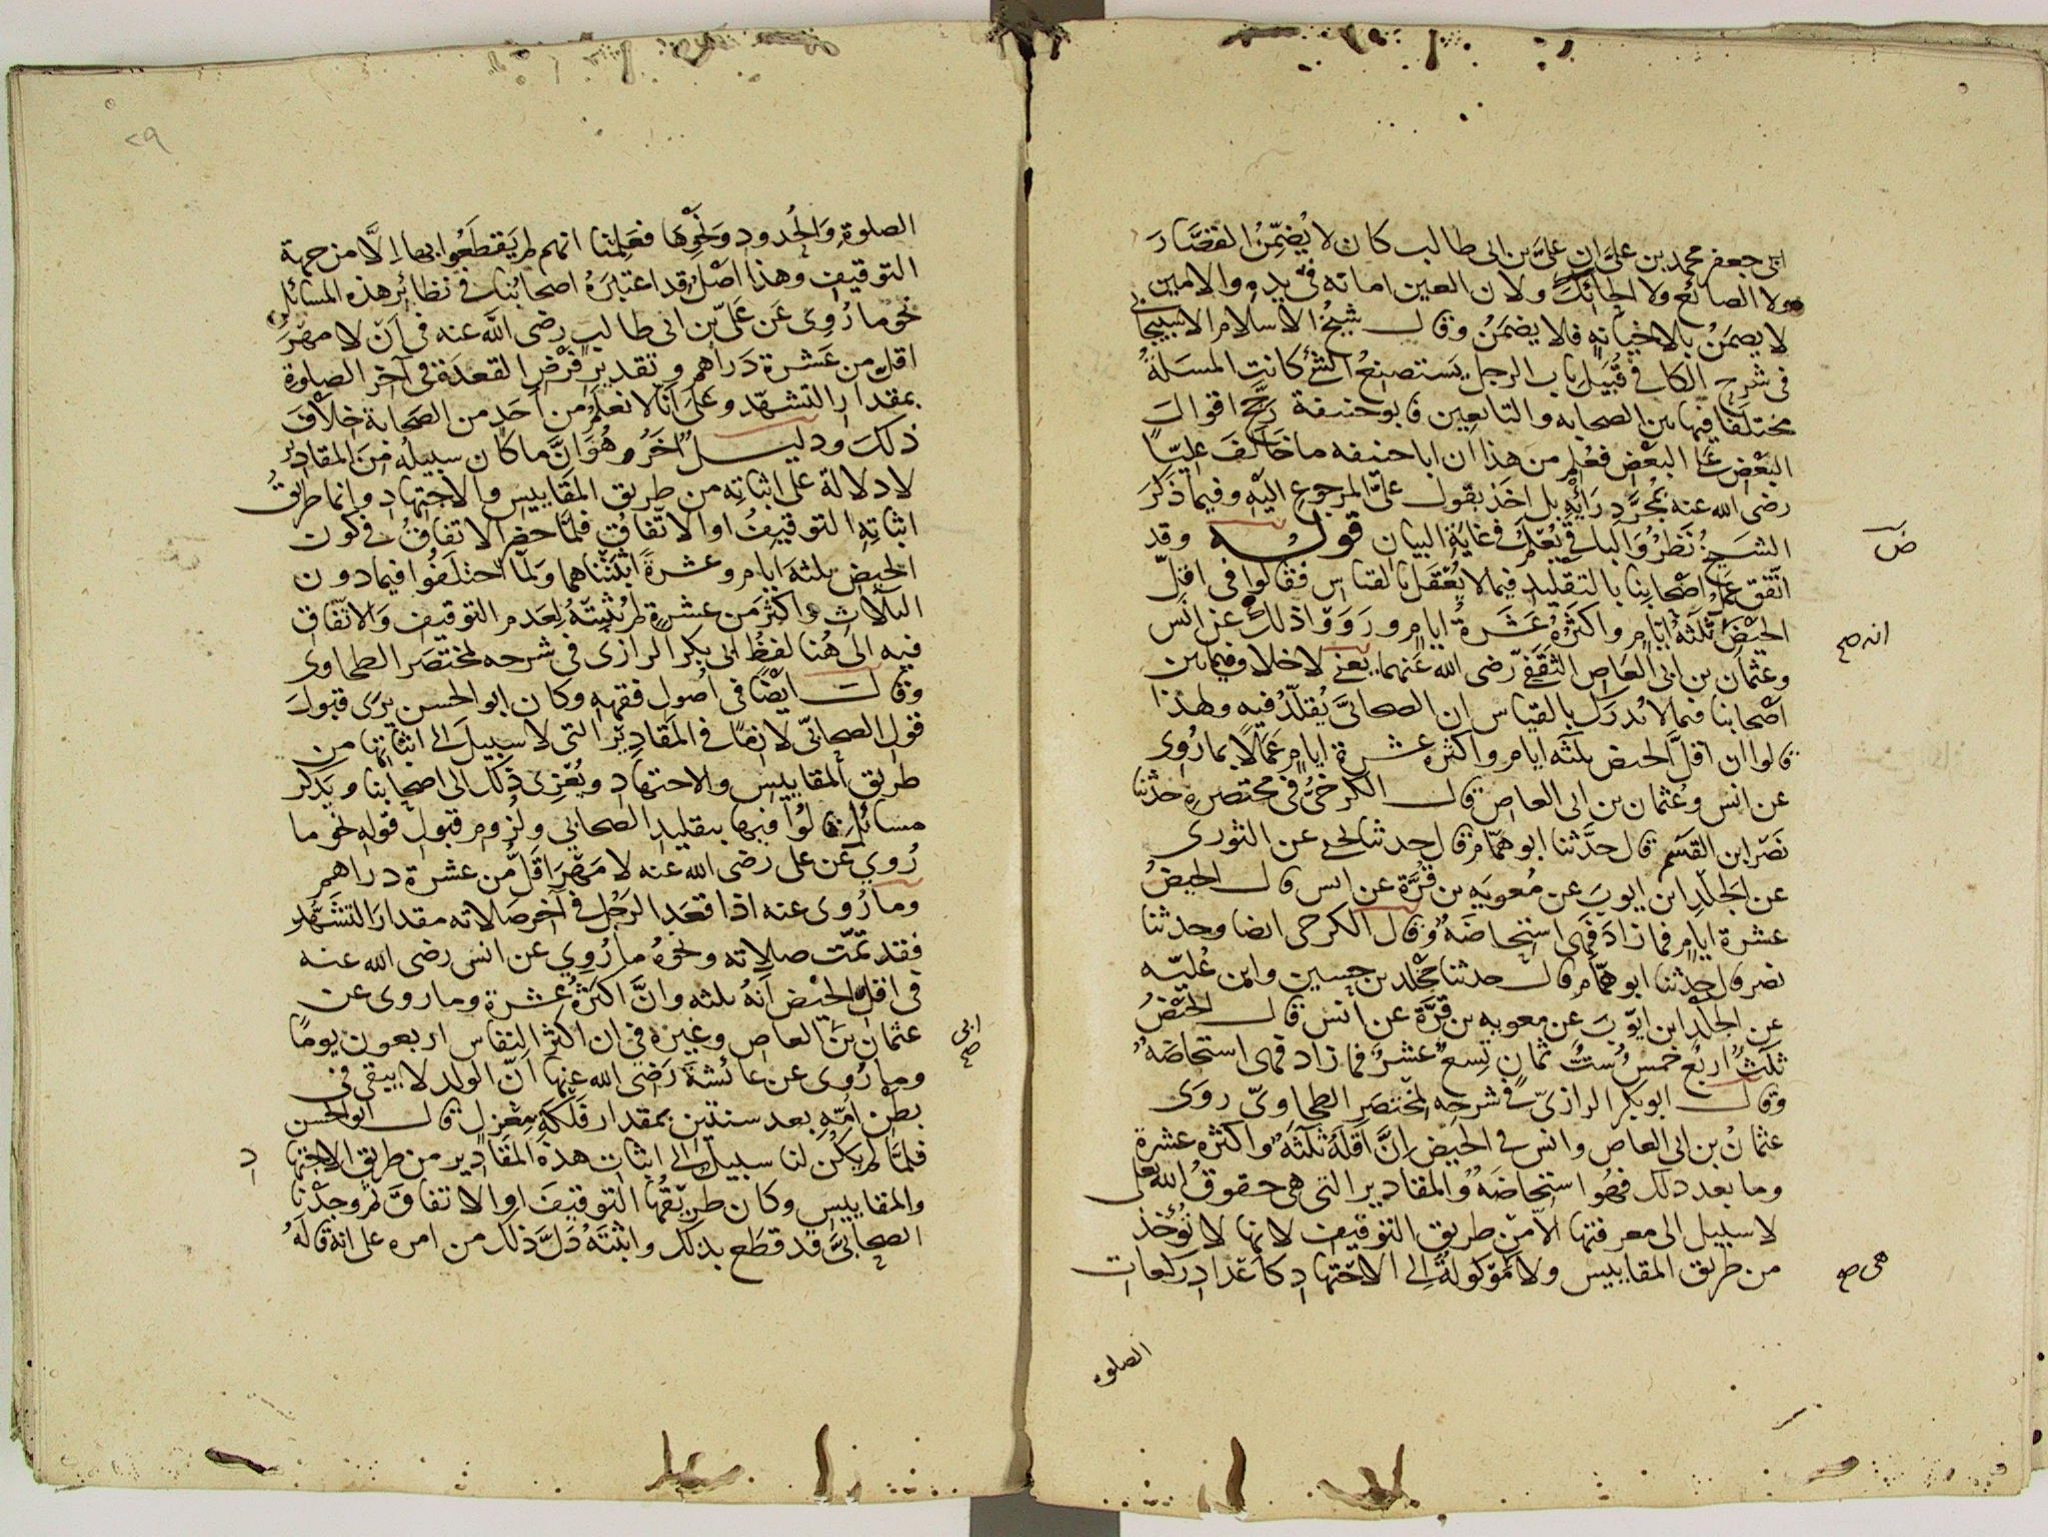 ابى جعفر محمد بن على ان على بن ابى طالب كان لا يُضَمِّنُ القصَّارَ
ولا الصائغ ولا الحائك ولان العين امانة فى يده والامين
لا يضمنُ بلا خيانةٍ فلا يضمَنُ وقال شيخُ الاسلام الاسبيجابى
فى شرح الكافى قُبَيل باب الرجل يستصنعُ الشئ كانت المسَلةُ
مختلفا فيها بين الصحابه والتابعين فابو حنيفة رجَّح اقوالَ
البَعْض عَلَى البَعْض فعُلم من هذا ان ابا حنيفه ما خَالَفَ عليّا
رضى الله عنه بمُجرَّدِ رَأيِهِ بل اخَذ بقول علىّ المرجوعِ اليْهِ وفيما ذكَرَ
الشيخُ نَظَرٌ والباقى يُعْلَمُ فى غايَة البيان قوله وقد
ض
اتَّفَق عَمَلُ اصْحابنا بالتقليد فيما لا يُعْقَل بالقياس فقالوا فى اقلّ
الحيْضِ ثَلثَةُ ايّام واكثَرُهُ عَشَرَةُ ايامٍ ورَوَوْا ذلك عن انس
انه صح
وعثمان بن ابى العَاص الثقَفِىّ رضى الله عَنهما يَعنى لا خلاف فيما بين
اصْحابنا فيما لا يُدرَك بالقياس ان الصحابىَّ يُقلَّدُ فيه ولهذا
قالوا ان اقلَّ الحيض ثلثه ايام واكثره عشرة ايام عمَلاً بما رُوى
عن انس وعُثمان بن ابى العاص قال الكرخىُّ فى مختصره حدثنا
نَصْر ابن القَسم قال حدَّثنا ابو همّام قال حدثنا يحيى عن الثورى
عن الجَلْدِ ابن ايوبَ عن مُعويه بن قُرَّة عن انس قال الحيضُ
عشرة ايام فما زادَ فَهى استحاضةٌ وقال الكرخى ايضا وحدثنا
نصر قال حدثنا ابو همّام قال حدثنا مَخْلد بن حسين وابن عُليّه
عن الجَلْدِ ابن ايّوبَ عن معويه بن قُرَّة عن انس قال الحيْضُ
ثلثٌ اربعٌ خمسٌ ستٌ ثمان تِسعٌ عشرٌ فما زاد فهى استحاضةٌ
وقال ابو بكر الرازىّ فى شرحه لمختصَر الطحاوىّ روَى
عثمانُ بن ابى العاص وانس فى الحَيْض انَّ اقلهُ ثَلثَةٌ واكثره عشرة
وما بعد ذلك فهو استحاضة والمقادير التى هى حقوقُ الله تعلى
لا سبيل الى معرفتها الا منْ طريق التوقيف لانها لا تُؤخذ
من طريق المقاييس ولا مَوْكولةٌ الى الاجتهادِ كاعدادِ ركعات
هى صح
الصلوة
٢٩
الصلوةِ وَالحُدودِ ونَحْوِها فعَلِمْنا انهم لم يَقطَعُوا بها الَّا من جهة
التوقيفِ وهذا اصْلٌ قد اعتبَرَهُ اصحابُنا فى نظائر هذه المسائل
نحو ما رُوِىَ عَن عَلىّ بن ابى طالب رضى الله عنه فى اَنْ لا مهْرَ
اقلّ من عَشرة دراهم وتقدير فَرْض القعدَة فى آخر الصلوةِ
بمقدارِ التشهّد وعَلَى انَّا لا نعلَمُ من اَحَد من الصَحابة خِلافَ
ذلكَ ودليلٌ آخَرُ وهُوَ انَّ ما كان سبيلهُ منَ المقاديرِ
لا دلالة على اثباتِه من طريق المقاييس والاجتهاد وانما طريقُ
اثباتهِ التوقيفُ او الاتّفاق فلمَّا حضر الاتفاقُ فى كون
الحيض ثلثةَ ايام وعشرةً اثبتْناهما ولَمَّا اختَلَفُوا فيما دون
الثلاث واكثرَ من عشرةٍ لم نُثبِتْهُ لِعَدم التوقيف والاتّفاق
فيه الى هُنا لفظُ ابى بكر الرازى فى شرحه لمختصَر الطحاوى
وقال ايْضًا فى اُصُول فقههِ وكان ابو الحسن يرَى قبولَ
قول الصحابىّ لازمًا فى المقَادِيْر التى لا سبيلَ الى اثباتها من
طريق المقاييس والاجتهادِ ويُعْزِى ذلكَ الى اصحابنا ويَذكر
مسائلَ قالُوا فيها بتقليد الصحابي ولُزوم قبول قوله نحو ما
رُوي عن على رضى الله عنه لا مَهْرَ اقَلَّ من عشرة دراهم
وما رُوى عنه اذا قعَدَ الرَجُل فى آخر صَلاته مقدارَ التشَهُّد
فقد تمّت صلاته ونحوُ ما رُوِي عن انس رضى الله عنه
فى اقلّ الحيْض انهُ ثلثه وانَّ اكثرَهُ عشرة وما روى عن
عثمان بن العاص وغيره فى ان اكثر النفاس اربعون يومًا
ابى صح
وما رُوى عن عائشةَ رَضى الله عنها اَنّ الولد لا يبقى فى
بطْن اُمّهِ بعد سنتَين بمقدار فَلكَةِ مِغْزل قال ابو الحسن
فلمَّا لم يكُن لنا سبيلٌ الى اثبات هذه المقَادير من طريق الاجتها
د
والمقاييس وكان طريقُها التوقيفَ او الاتفاقَ ثم وجدْنا
الصحابىَّ قد قطَع بذلك واثبتَهُ دَلَّ ذلك من امره على انه قالهُ